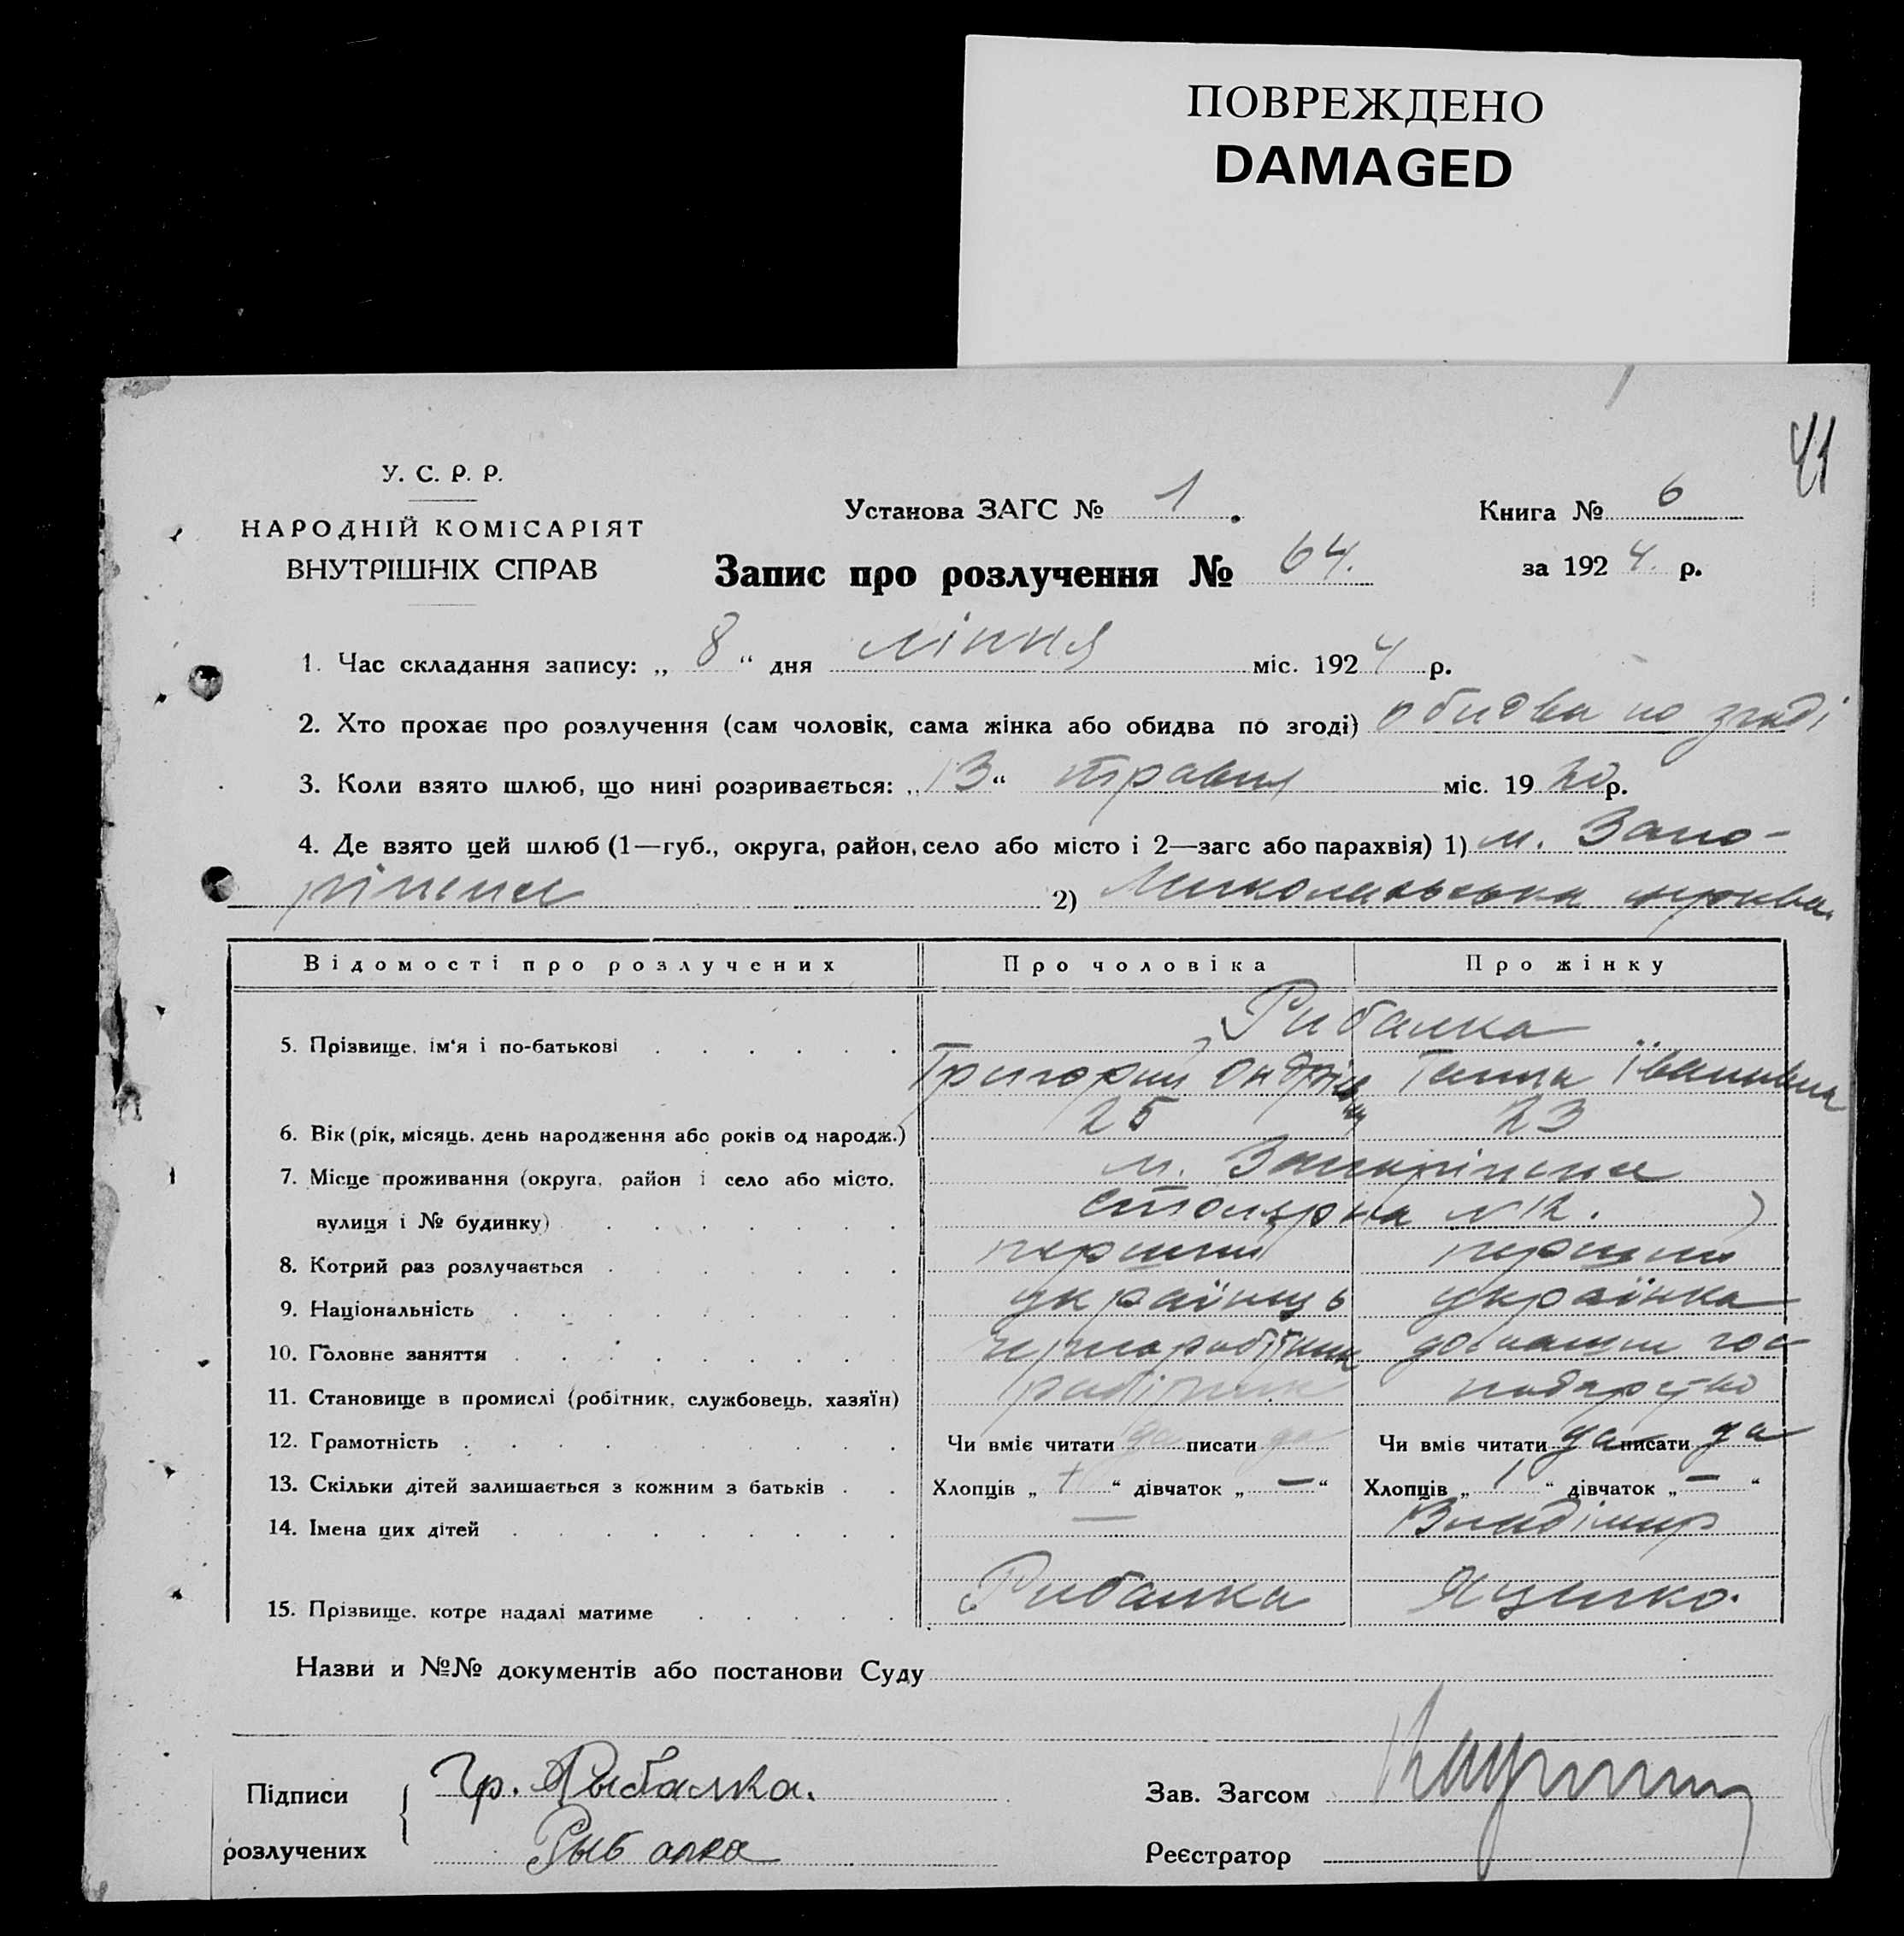 ПОВРЕЖДЕНО
DAMAGED
41
У. С. Р. Р.
НАРОДНІЙ КОМІСАРІЯТ
ВНУТРІШНІХ СПРАВ
Установа ЗАГС № 1.
Книга № 6
Запис про розлучення № 64.
за 1924. р.
1. Час складання запису: „ 8 “ дня ліпня міс. 1924 р.
2. Хто прохає про розлучення (сам чоловік, сама жінка або обидва по згоді) обидва по згоді
3. Коли взято шлюб, що нині розривається: „13“ травня міс. 1920р.
4. Де взято цей шлюб (1—губ., округа, район, село або місто і 2—загс або парахвія) 1) м. Запо-
ріжжя 2) Миколаевська церква.
Відомості про розлучених Про чоловіка Про жінку
Рибалка
5. Прізвище, ім‘я і по-батькові
Григорий Ганна Івановна
6. Вік (рік, місяць, день народження або років од народж.) 25 23
7. Місце проживання (округа, район і село або місто, м. Запоріжжя
вулиця і № будинку) столярна №12.
8. Котрий раз розлучається перший перший
9. Національність українець українка
10. Головне заняття чернаробітник домашне гос-
11. Становище в промислі (робітник, службовець, хазяїн) робітник подарство
12. Грамотність Чи вміє читати да писати да Чи вміє читати да писати да
13. Скільки дітей залишається з кожним з батьків Хлопців „ “ дівчаток „ — “ Хлопців „ 1 “ дівчаток „ — “
14. Імена цих дітей — Владімир
15. Прізвище, котре надалі матиме Рибалка Яценко.
Назви и №№ документів або постанови Суду
Підписи Гр. Рыбалка. Зав. Загсом
розлучених Рыбалка Реєстратор